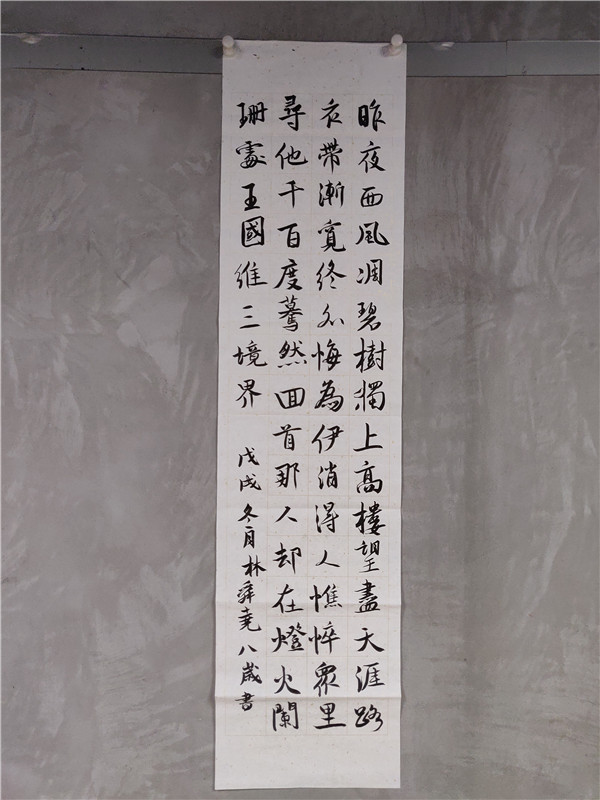 昨夜西風凋碧樹獨上高樓望盡天涯路
衣帶漸寬終不悔為伊消得人憔悴眾里
尋他千百度驀然回首那人却在燈火闌
珊處王國維三境界 戊戌冬月林舜堯八歲書